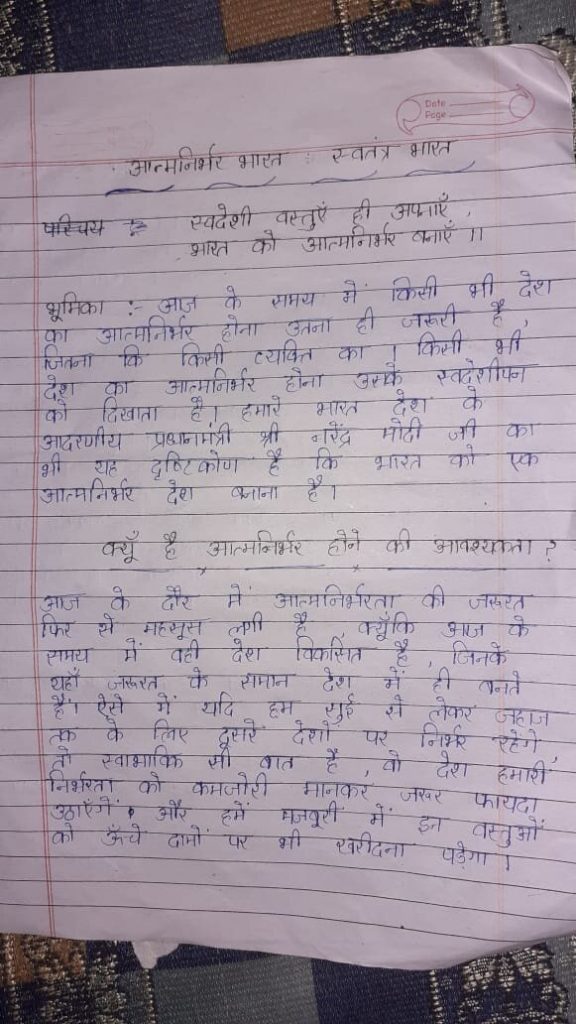 Date
Page
आत्मनिर्भर भारत : स्वतंत्र भारत
परिचय :- स्वदेशी वस्तुएँ ही अपनाएँ,
भारत को आत्मनिर्भर बनाएँ ।।
भूमिका :- आज के समय में किसी भी देश
का आत्मनिर्भर होना उतना ही जरूरी है,
जितना कि किसी व्यक्ति का । किसी भी
देश का आत्मनिर्भर होना उसके स्वदेशीपन
को दिखाता है। हमारे भारत देश के
आदरणीय प्रधानमंत्री श्री नरेंद्र मोदी जी का
भी यह दृष्टिकोण है कि भारत को एक
आत्मनिर्भर देश बनाना है।
क्यूँ है आत्मनिर्भर होने की आवश्यकता ?
आज के दौर में आत्मनिर्भरता की जरूरत
फिर से महसूस लगी है, क्यूँकि आज के
समय में वही देश विकसित है, जिनके
यहाँ जरूरत के समान देश में ही बनते
हैं। ऐसे में यदि हम सुई से लेकर जहाज
तक के लिए दूसरे देशों पर निर्भर रहेंगे,
तो स्वाभाविक सी बात है, वो देश हमारी
निर्भरता को कमजोरी मानकर जरूर फायदा
उठाएंगें। और हमें मजबूरी में इन वस्तुओं
को ऊँचे दामों पर भी खरीदना पड़ेगा ।